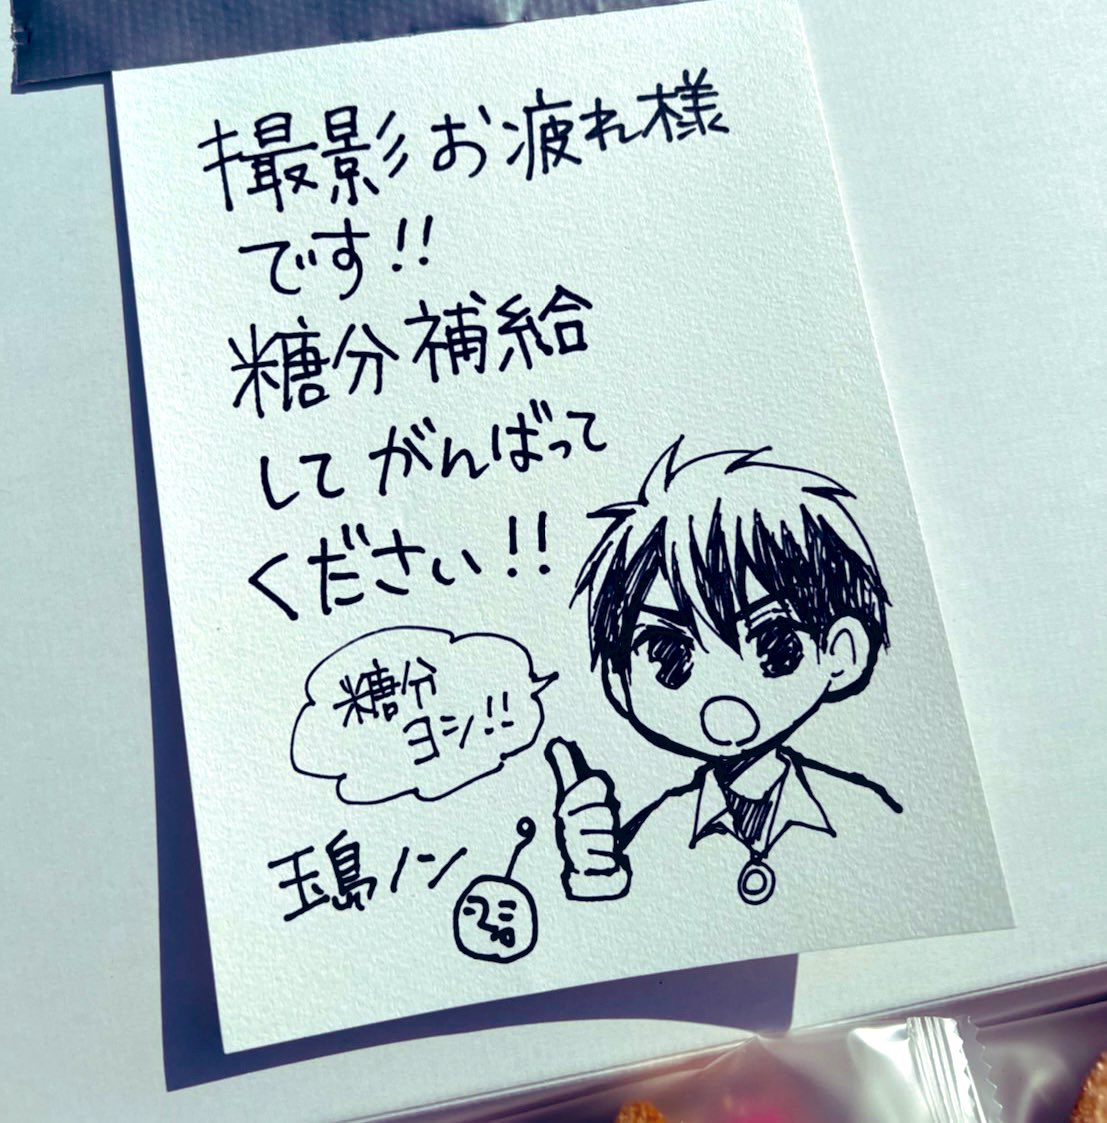 撮影お疲れ様
です!!
糖分補給
してがんばって
ください!!
糖分
ヨシ!!
玉島ノン